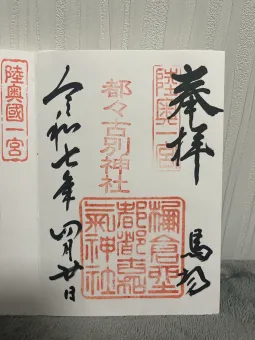 奉拝
陸奥一宮
馬場
都々古別神社
棚倉
都都古
氣神社
令和七年四月廿日
陸奥國一宮